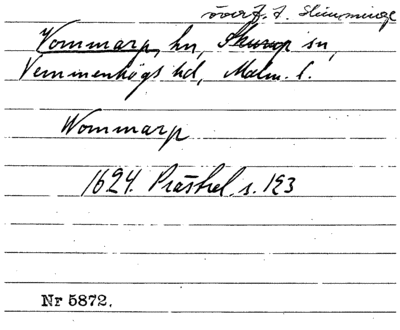 överf. t. Slimminge
Vommarp, hn, Skurup sn,
Vemmenhögs hd, Malm. l.
Wommarp
1624. Prästrel. s. 193
Nr 5872.